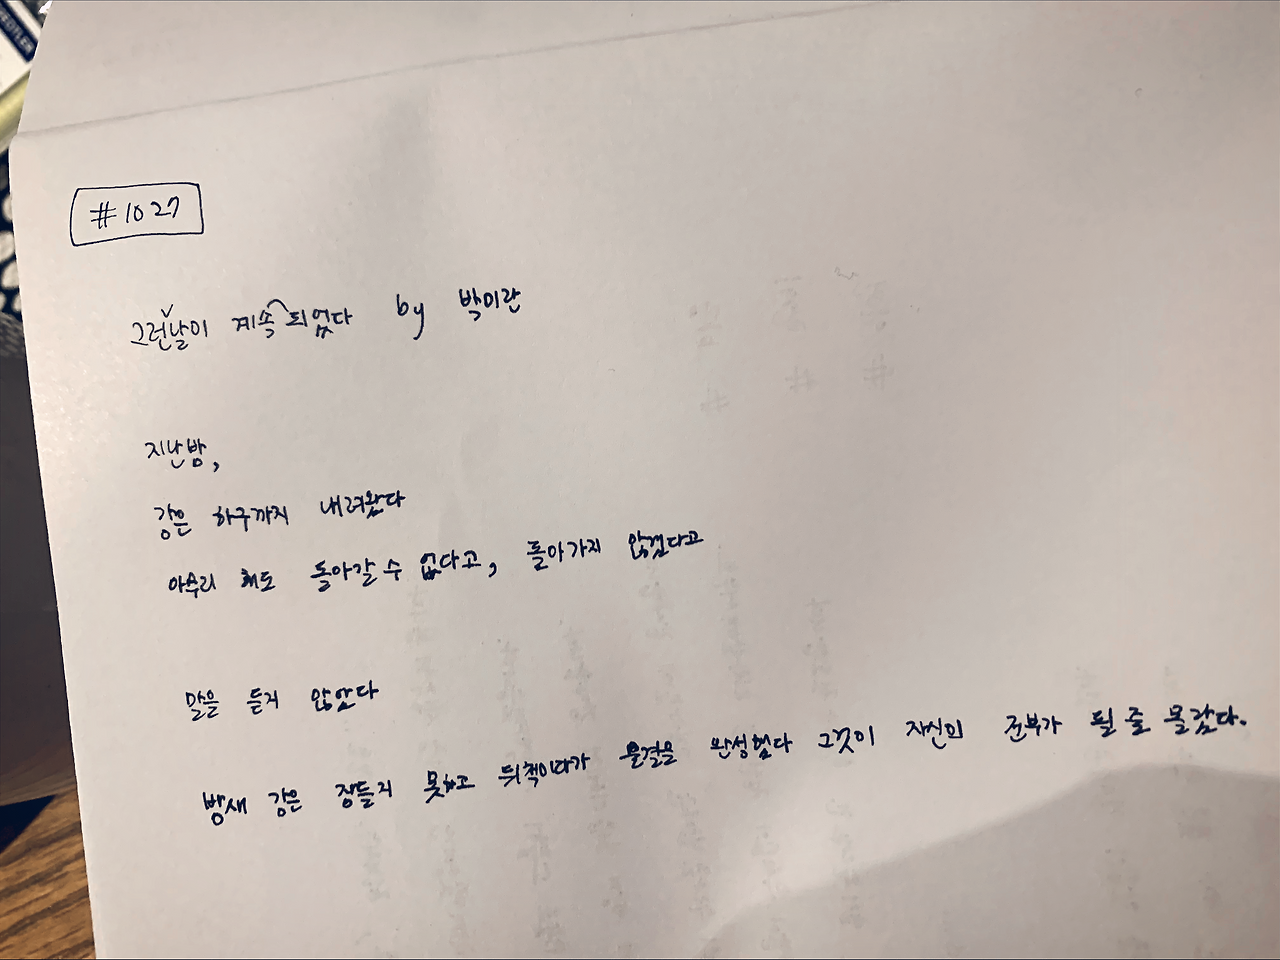 #1027
그런 날이 계속되었다 by 박미란
지난밤,
강은 하구까지 내려왔다
아무리 해도 돌아갈 수 없다고, 돌아가지 않겠다고
말을 듣지 않았다
밤새 강은 잠들지 못하고 뒤척이다가 물결을 완성했다 그것이 자신의 전부가 될 줄 몰랐다.